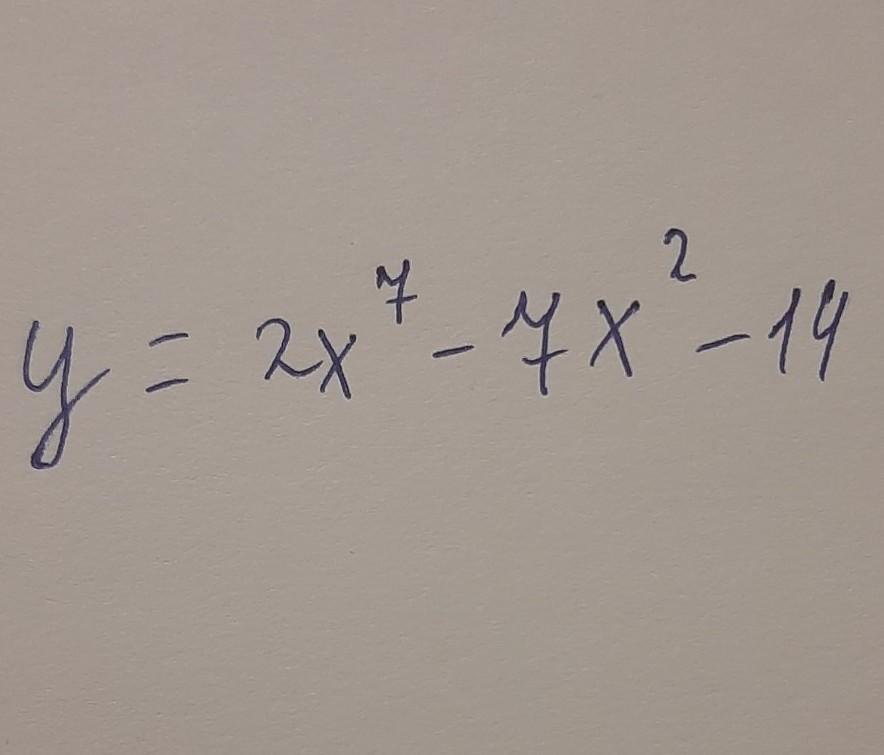 y = 2x⁷ - 7x² - 14